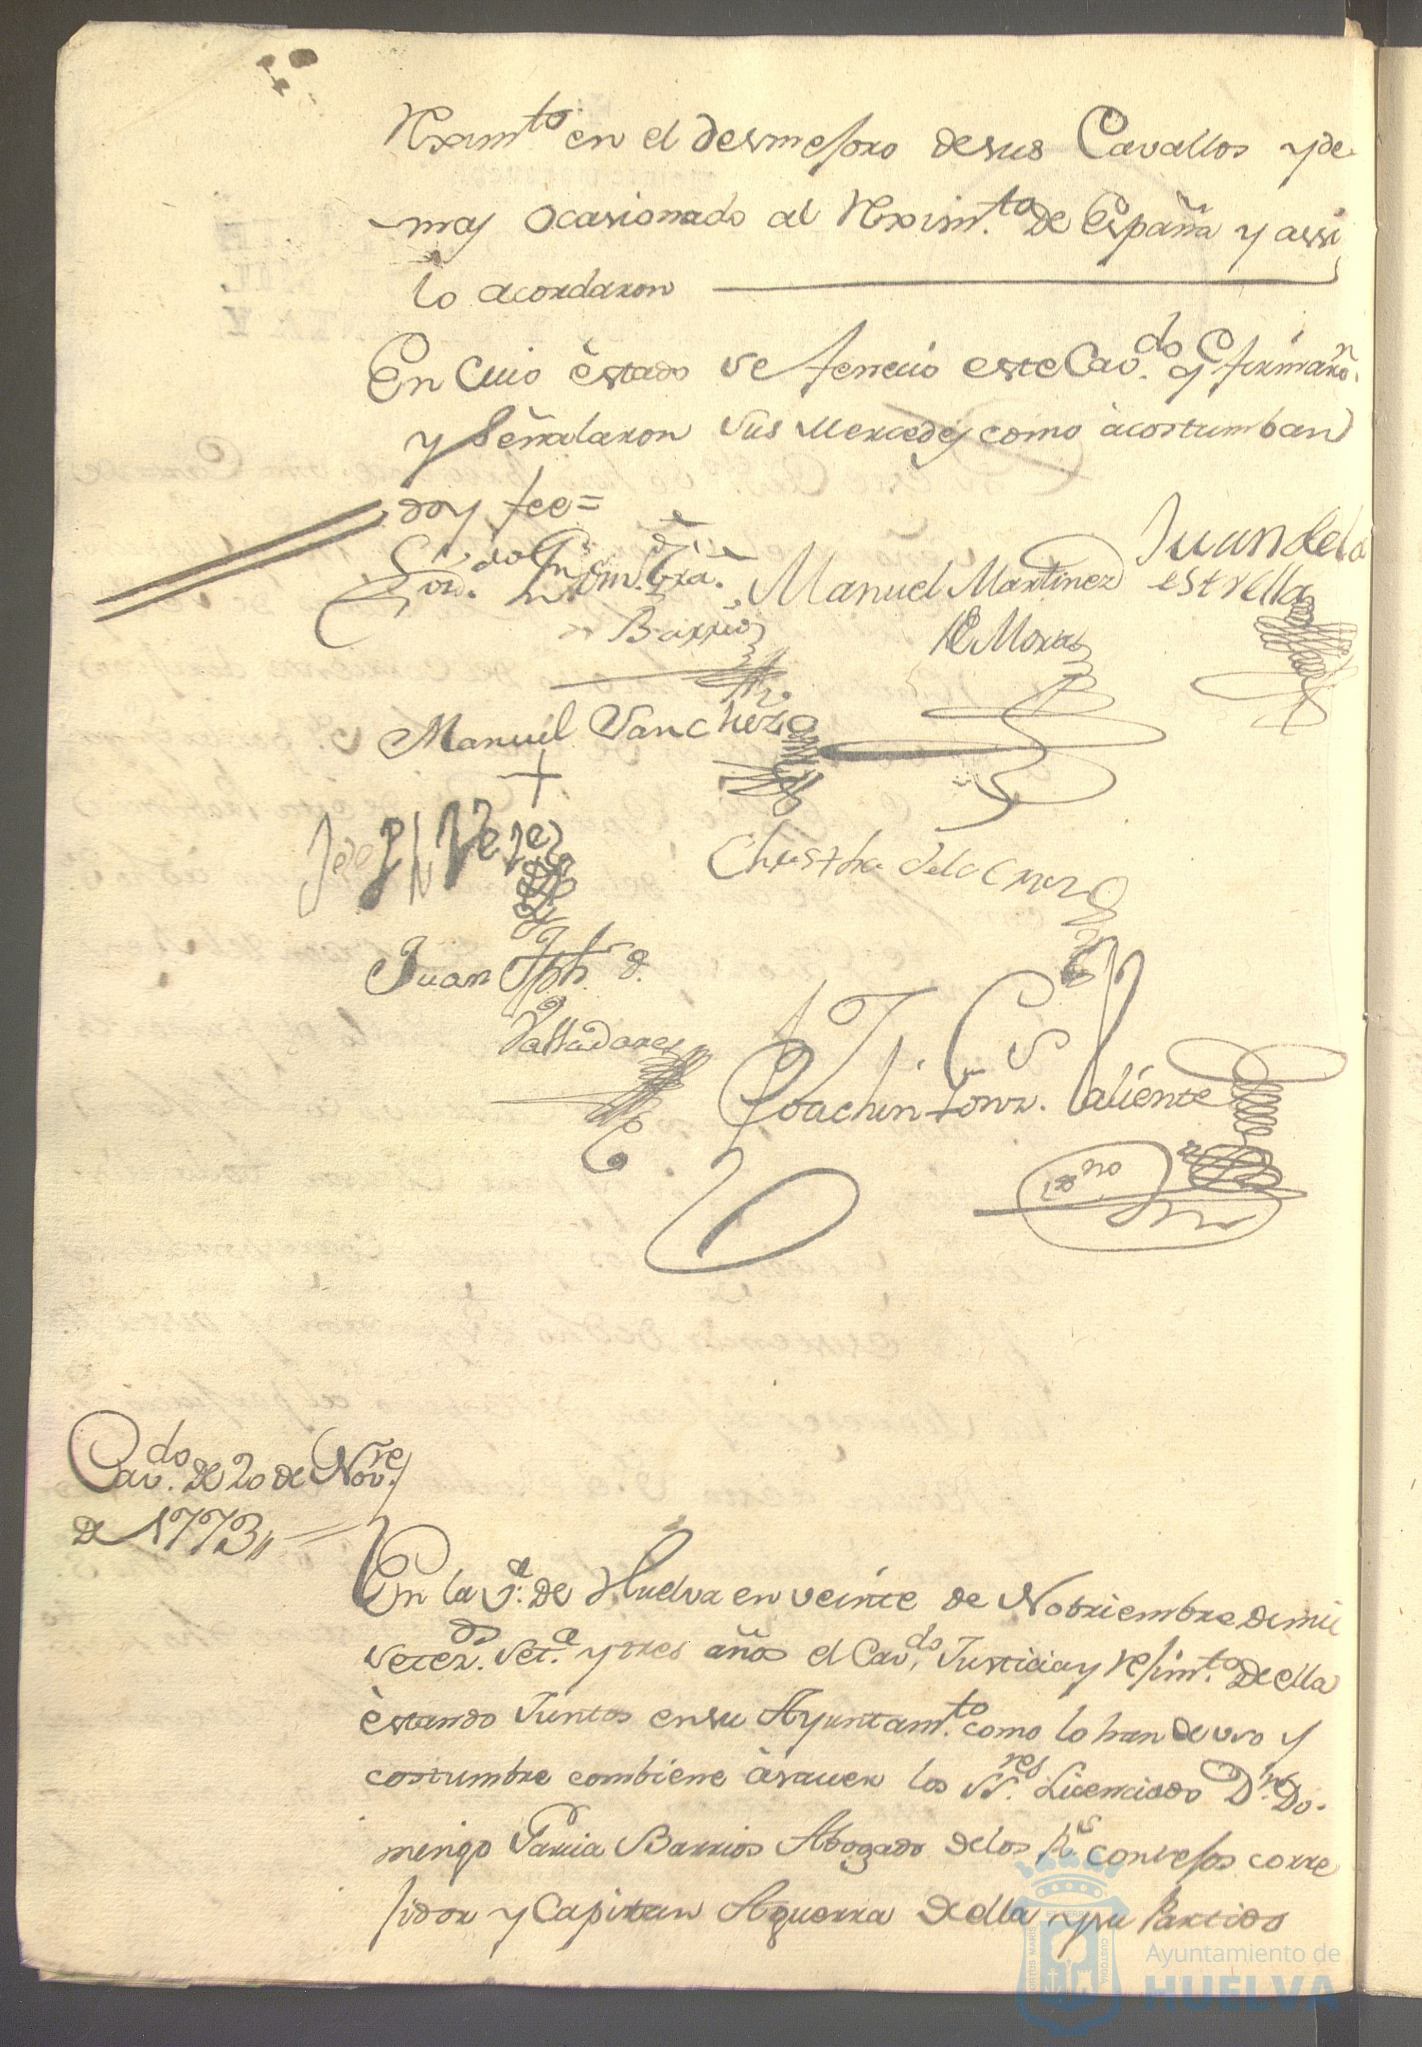 Rximto en el desmesoro desus Cavallos y de
mas ocasionado al Rexim.to de España y assi
lo acordaron
En Cuio èstado se fenecio este Cav.do q firmaron
y señalaron sus Mercedes como àcostumban
doy fee=
Lizdo. Dn. Dom. Gra. Manuel Martinez Juan de la
Barrios de Mora estrella
Manuel Sanchez
Christbal dela Cruz
Juan Jph. d.
Valladares
Joachin Gonz. Valiente
Cav.do de 20 de Nov.re
de 1773
En la V.a de Huelva en veinte de Nobriembre de mil
setez.os set.a y tres años el Cav.do Justicia y resim.to de ella
èstando Juntos en su Ayuntam.to como lo han de uso y
costumbre combiene àsauer los SS.res Licenciado D.n Do-
mingo Garcia Barrios Abogado de los R.s consejos corre
sidor y Capitan Aguerra de ella y su Partido
Ayuntamiento de
HUELVA